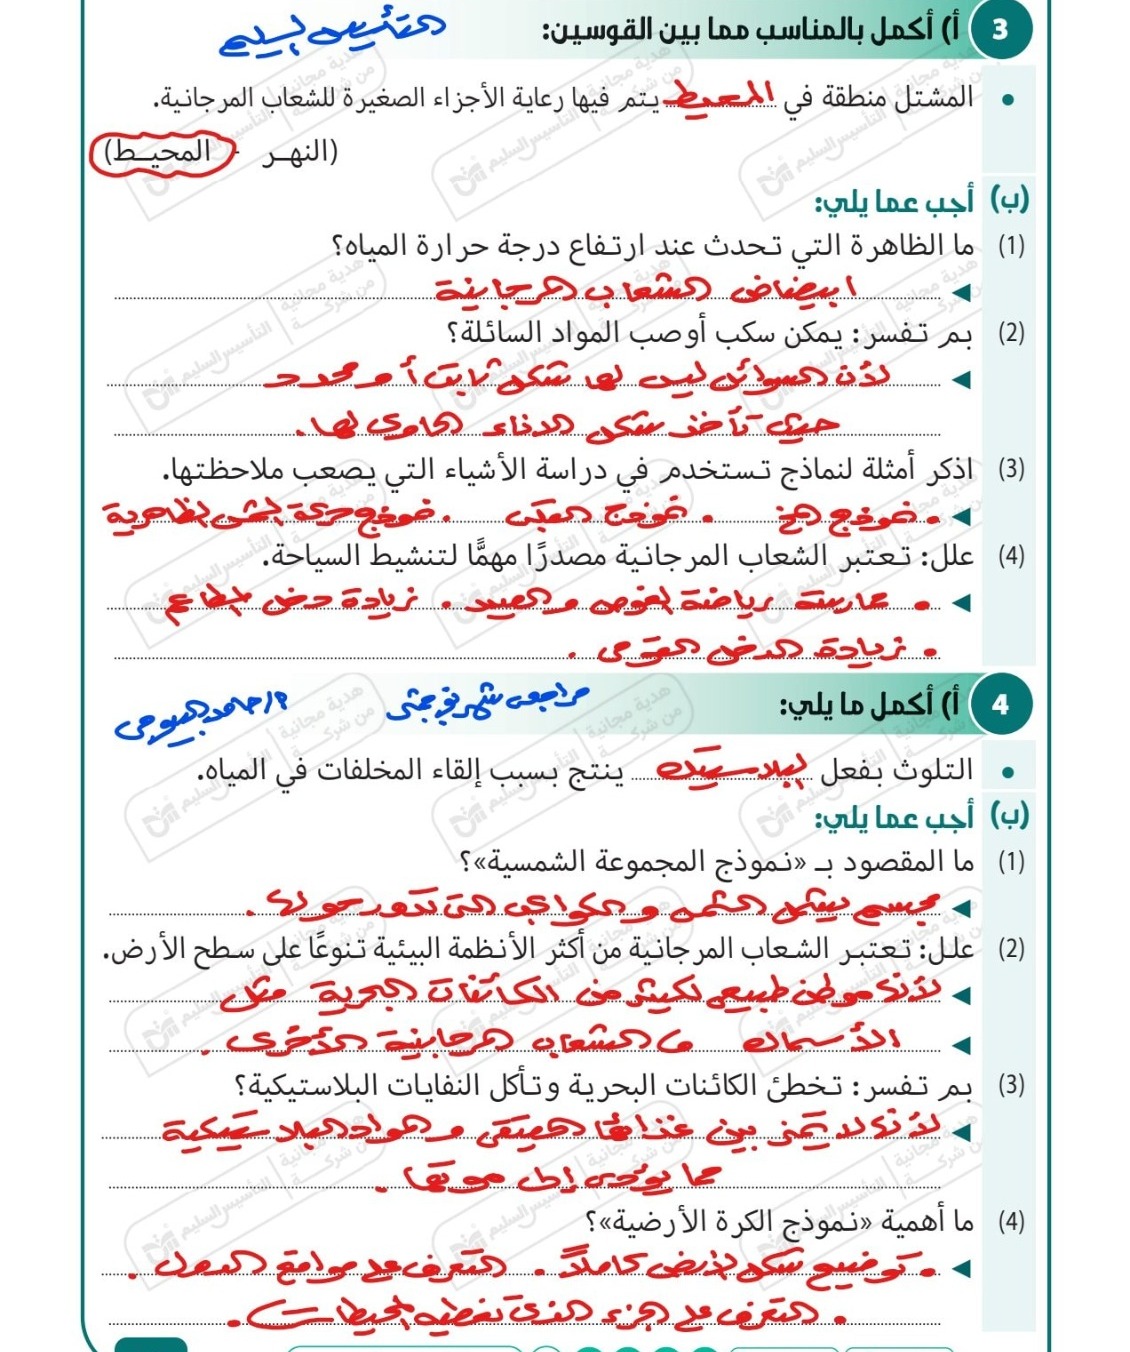 3 أ) أكمل بالمناسب مما بين القوسين: التأسيس السليم
• المشتل منطقة في المحيط يتم فيها رعاية الأجزاء الصغيرة للشعاب المرجانية.
(النهر - المحيط)
(ب) أجب عما يلي:
(1) ما الظاهرة التي تحدث عند ارتفاع درجة حرارة المياه؟
ابيضاض الشعاب المرجانية
(2) بم تفسر: يمكن سكب أو صب المواد السائلة؟
لأن السوائل ليس لها شكل ثابت أو محدد
حيث تأخذ شكل الإناء الحاوي لها.
(3) اذكر أمثلة لنماذج تستخدم في دراسة الأشياء التي يصعب ملاحظتها.
• نموذج المخ • نموذج القلب • نموذج حركة الشمس الظاهرية
(4) علل: تعتبر الشعاب المرجانية مصدرًا مهمًّا لتنشيط السياحة.
• ممارسة رياضة الغوص والصيد • زيادة دخل المطاعم
• زيادة الدخل القومي.
4 أ) أكمل ما يلي: مراجعة شهر فبراير
• التلوث بفعل البلاستيك ينتج بسبب إلقاء المخلفات في المياه.
(ب) أجب عما يلي:
(1) ما المقصود بـ «نموذج المجموعة الشمسية»؟
مجسم يمثل الشمس والكواكب التي تدور حولها.
(2) علل: تعتبر الشعاب المرجانية من أكثر الأنظمة البيئية تنوعًا على سطح الأرض.
لأنها موطن طبيعي لكثير من الكائنات البحرية مثل
الأسماك والشعاب المرجانية الأخرى.
(3) بم تفسر: تخطئ الكائنات البحرية وتأكل النفايات البلاستيكية؟
لأنها لا تميز بين غذائها الحقيقي والمواد البلاستيكية
مما يؤدي إلى موتها.
(4) ما أهمية «نموذج الكرة الأرضية»؟
• توضيح شكل الأرض كاملاً. • التعرف على مواقع الدول.
• التعرف على الجزء الذي تغطيه المحيطات.